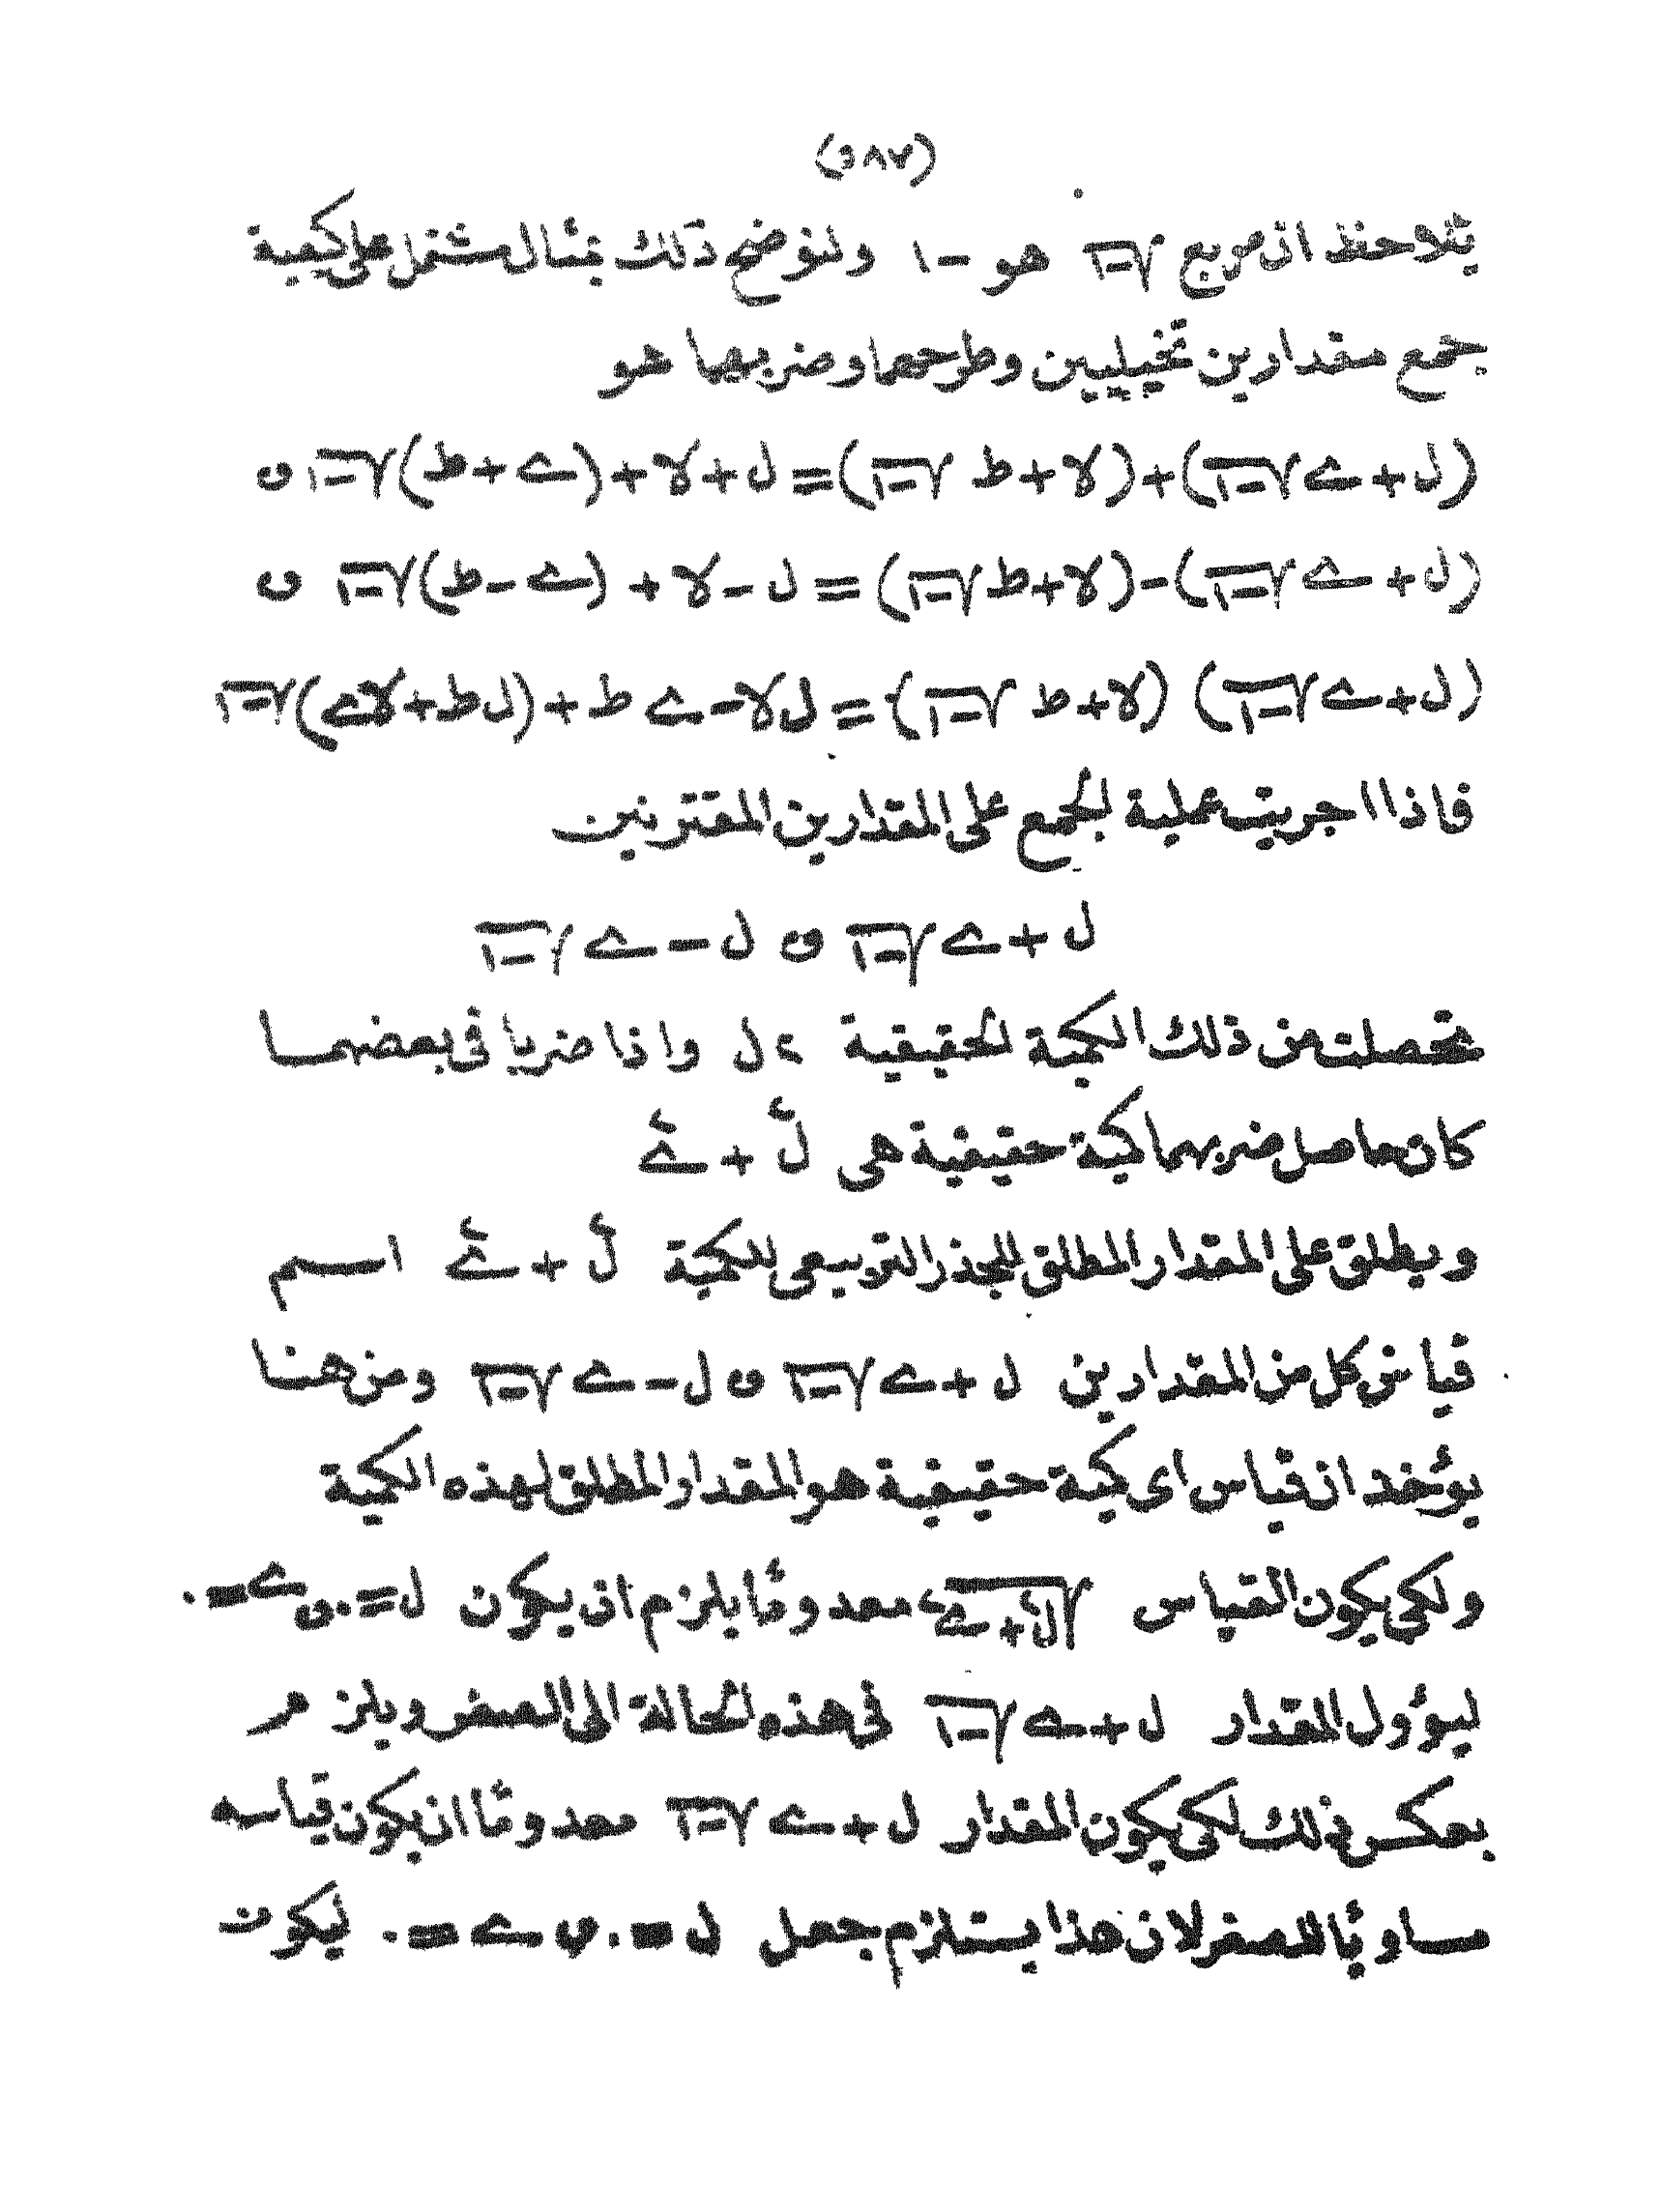 (٣٨٧)
يلاحظ ان مربع √-١ هو -١ ولنوضح ذلك بمثال مشتمل على كيفية
جمع مقدارين تخيليين وطرحهما وضربهما هو
(ل+ے√-١)+(لا+ط√-١)=ل+لا+(ے+ط)√-١ و
(ل+ے√-١)-(لا+ط√-١)=ل-لا+(ے-ط)√-١ و
(ل+ے√-١)(لا+ط√-١)=ل لا-ے ط+(ل ط+لاے)√-١
فاذا اجريت عملية الجمع على المقدارين المقترنين
ل+ے√-١ و ل-ے√-١
تحصلت من ذلك الكمية الحقيقية ٢ل واذا ضربا فى بعضهما
كان حاصل ضربهما كمية حقيقية هى ل٢+ے٢
ويطلق على المقدار المطلق للجذر التربيعى للكمية ل٢+ے٢ اسم
قياس كل من المقدارين ل+ے√-١ و ل-ے√-١ ومن هنا
يؤخذ ان قياس اى كمية حقيقية هو المقدار المطلق لهذه الكمية
ولكى يكون القياس √ل٢+ے٢ معدومًا يلزم ان يكون ل=٠ وے=٠
ليؤول المقدار ل+ے√-١ فى هذه الحالة الى الصفر ويلزم
بعكس ذلك لكى يكون المقدار ل+ے√-١ معدومًا ان يكون قياسه
مساويًا للصفر لان هذا يستلزم جعل ل=٠ و ے=٠ ليكون